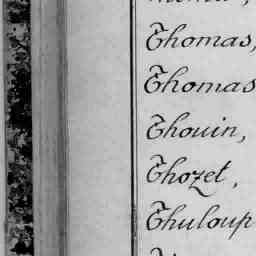 Thomas,
Thomas
Thouin,
Thozet,
Thuloup